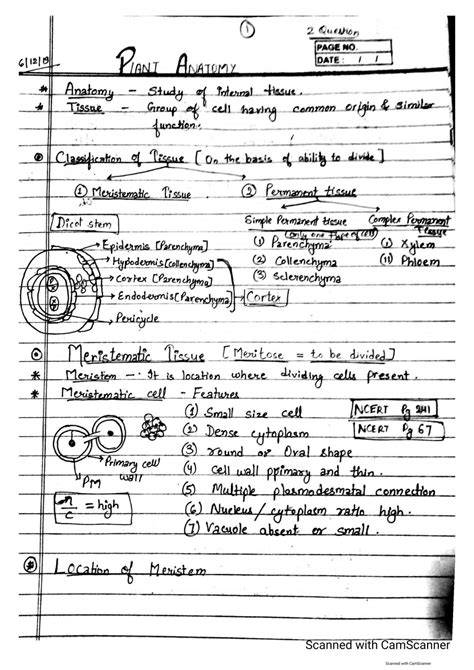 1
2 Question
PAGE NO.
DATE: / /
6/12/19
PLANT ANATOMY
* Anatomy - Study of internal tissue.
* Tissue - Group of cell having common origin & similar
function.
Classification of Tissue [On the basis of ability to divide]
① Meristematic Tissue ② Permanent tissue
Simple Permanent tissue Complex Permanent Tissue
(only one type of cell)
(1) Parenchyma (i) Xylem
(2) Collenchyma (ii) Phloem
(3) Sclerenchyma
Dicot stem
Epidermis [Parenchyma]
Hypodermis [Collenchyma]
Cortex [Parenchyma]
Endodermis [Parenchyma] Cortex
Pericycle
Meristematic Tissue [Meritose = to be divided]
* Meristem -: It is location where dividing cells present.
* Meristematic cell - Features
(1) Small size cell
NCERT Pg 241
(2) Dense cytoplasm
NCERT Pg 67
(3) round or Oval shape
(4) Cell wall ppimary and thin.
(5) Multiple plasmodesmatal connection
(6) Nucleus/cytoplasm ratio high.
(7) Vacuole absent or small.
Primary cell
wall
PM
n/c = high
Location of Meristem
Scanned with CamScanner
Scanned with CamScanner